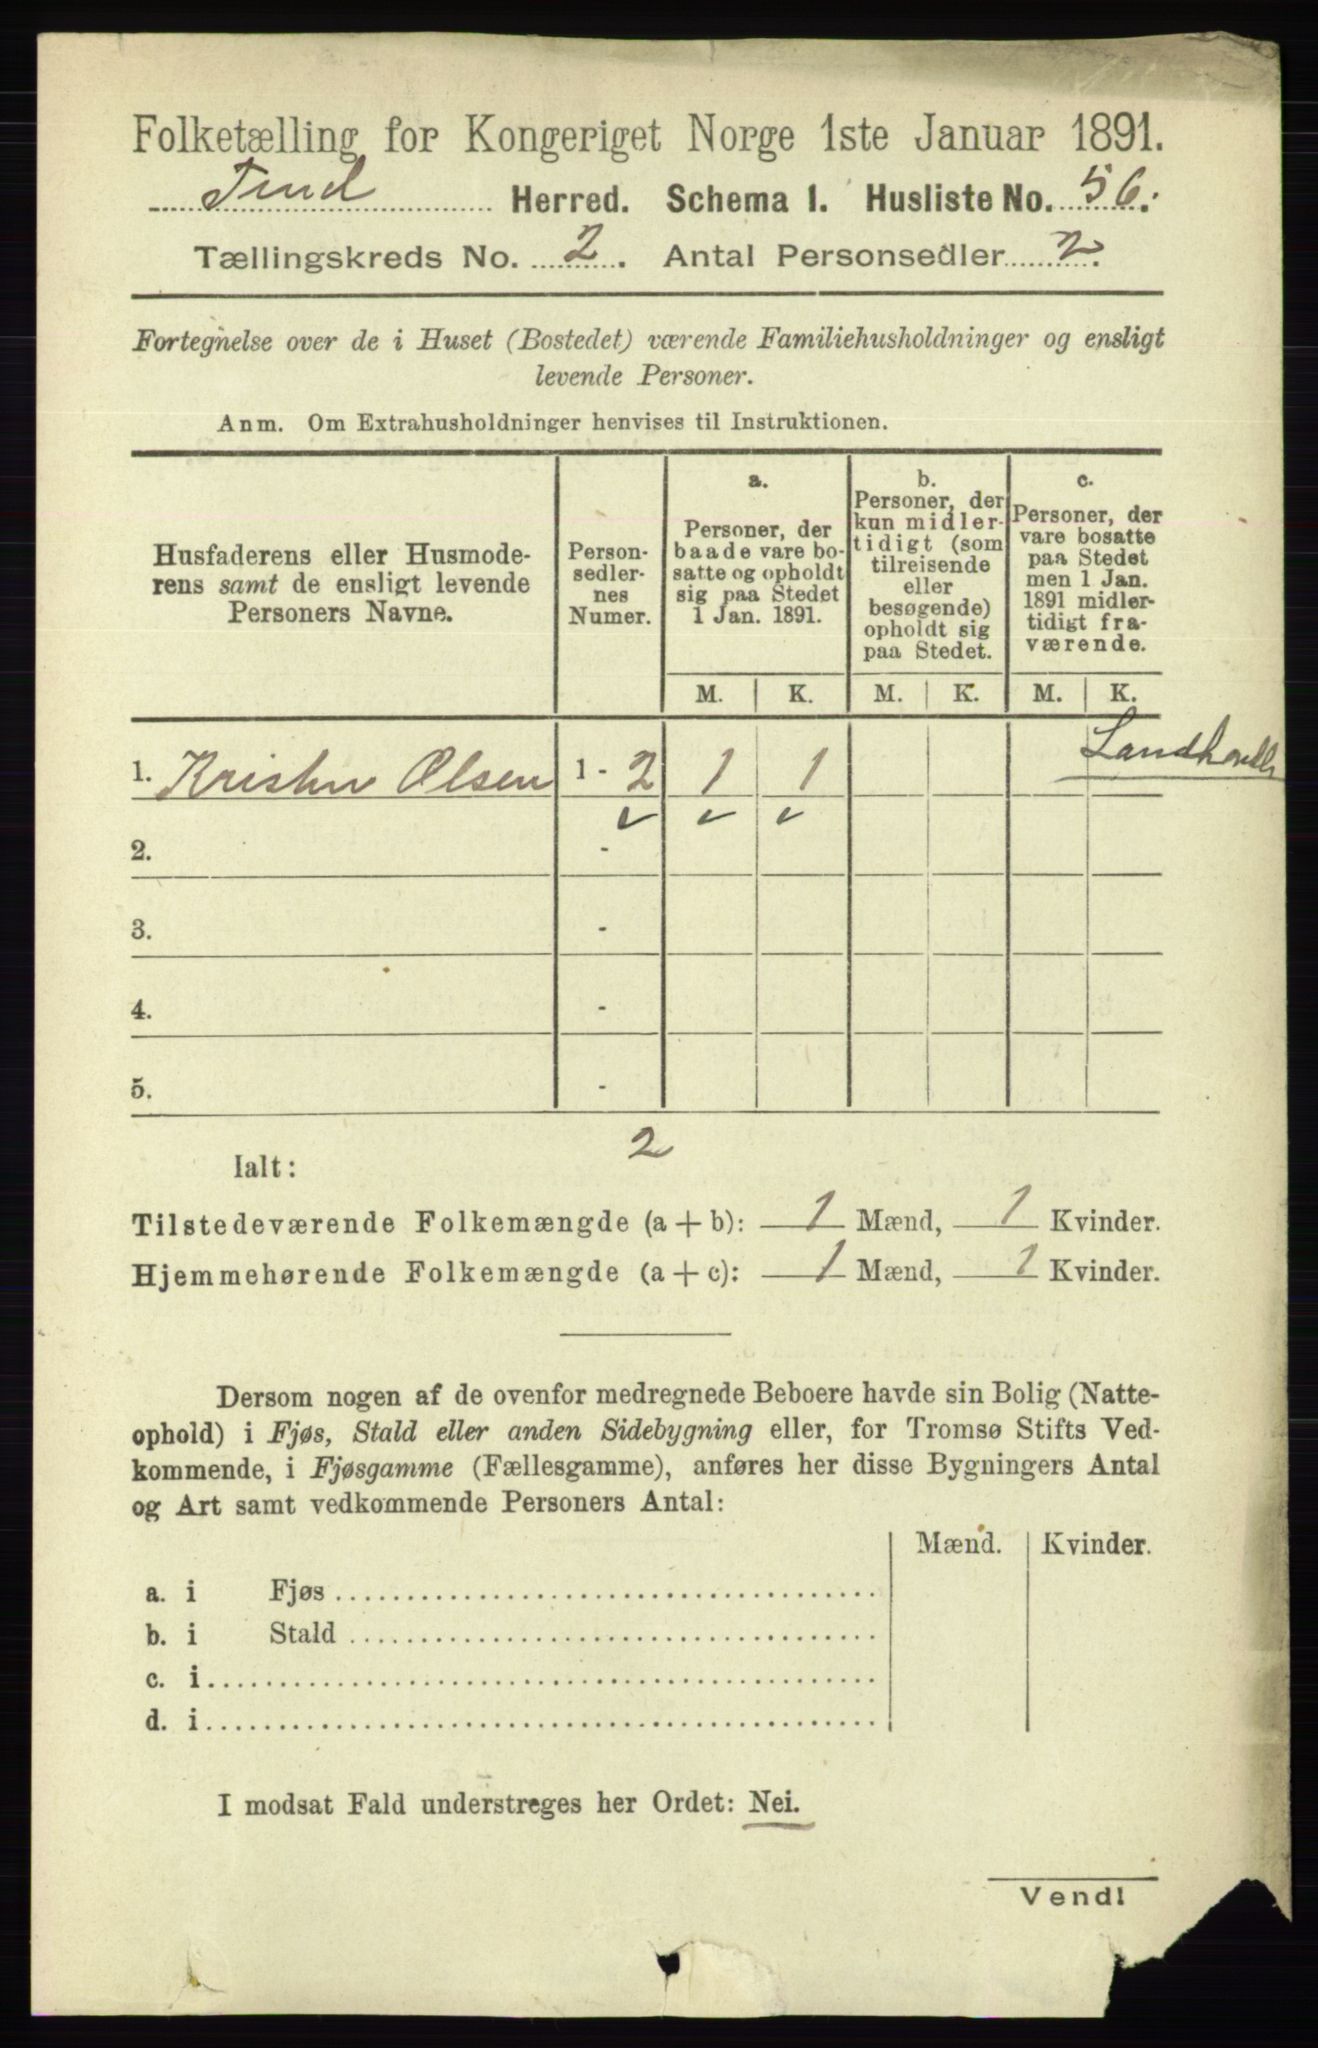 Folketælling for Kongeriget Norge 1ste Januar 1891.
Tind Herred. Schema 1. Husliste No. 56.
Tællingskreds No. 2. Antal Personsedler 2.
Fortegnelse over de i Huset (Bostedet) værende Familiehusholdninger og ensligt
levende Personer.
Anm. Om Extrahusholdninger henvises til Instruktionen.
Husfaderens eller Husmode-
rens samt de ensligt levende
Personers Navne.
Person-
sedler-
nes
Numer.
a.
Personer, der
baade vare bo-
satte og opholdt
sig paa Stedet
1 Jan. 1891.
b.
Personer, der
kun midler-
tidigt (som
tilreisende
eller
besøgende)
opholdt sig
paa Stedet.
c.
Personer, der
vare bosatte
paa Stedet
men 1 Jan.
1891 midler-
tidigt fra-
værende.
M. K. M. K. M. K.
1. Kristen Olsen 1 - 2 1 1
2. -
3. -
4. -
5. -
2
Ialt:
Tilstedeværende Folkemængde (a + b): 1 Mænd, 1 Kvinder.
Hjemmehørende Folkemængde (a + c): 1 Mænd, 1 Kvinder.
Dersom nogen af de ovenfor medregnede Beboere havde sin Bolig (Natte-
ophold) i Fjøs, Stald eller anden Sidebygning eller, for Tromsø Stifts Ved-
kommende, i Fjøsgamme (Fællesgamme), anføres her disse Bygningers Antal
og Art samt vedkommende Personers Antal:
Mænd. Kvinder.
a. i Fjøs
b. i Stald
c. i
d. i
I modsat Fald understreges her Ordet: Nei.
Vend!